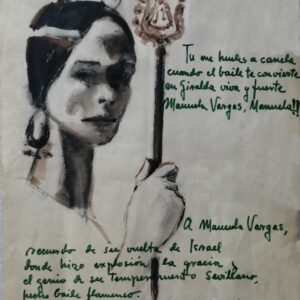 Tu me hueles a canela
cuando el baile te convierte
en Giralda viva y fuerte
Manuela Vargas, Manuela!!
A Manuela Vargas,
recuerdo de su vuelta de Israel
donde hizo explosión la gracia y
el genio de su temperamento Sevillano,
hecho baile flamenco.